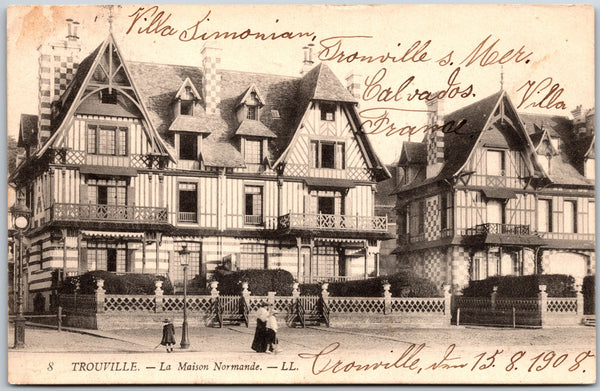 Villa Simonian, Trouville s. Mer.
Calvados.
Franc Villa
8 TROUVILLE. — La Maison Normande. — LL.
Trouville, den 15. 8. 1908.